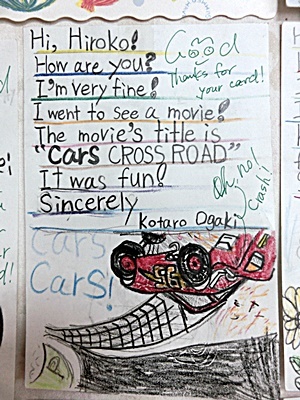 Hi, Hiroko!
Good
How are you?
Thanks for your card!
I'm very fine!
I went to see a movie!
The movie's title is
"Cars CROSS ROAD"
It was fun!
Oh, no!
Crash!
Sincerely
Kotaro Ogaki
Cars
Cars!